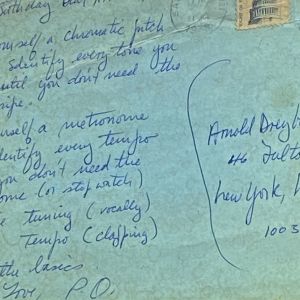 Birthday
yourself a chromatic pitch
identify every tone you
until you don't need the
pipe.
yourself a metronome
identify every tempo
you don't need the
ome (or stopwatch)
tuning (vocally)
Tempo (clapping)
the basics
Love, P.O.
Arnold Dreyb
46 Fulto
New York, N
1003